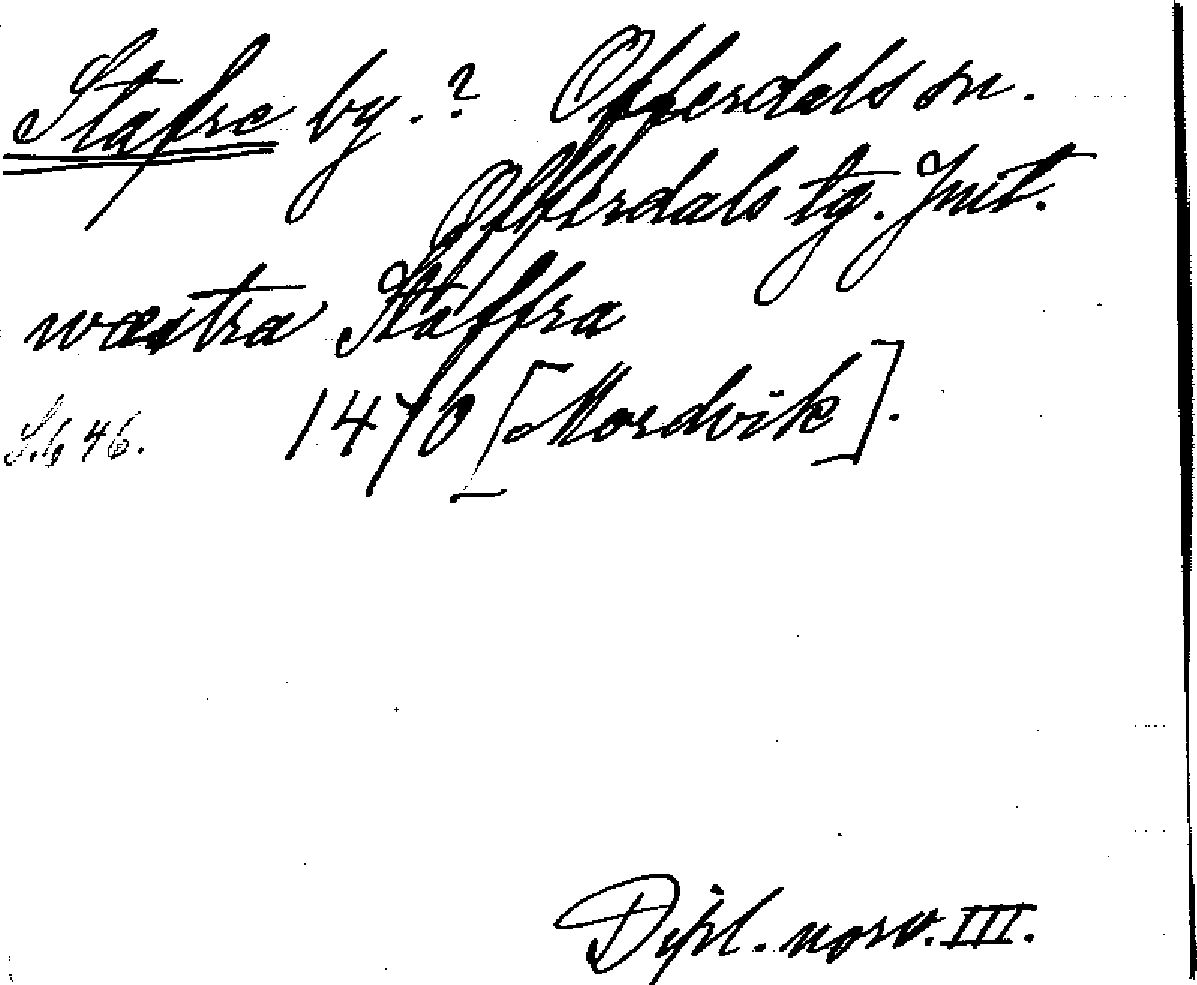 Stafre by.? Offerdals sn.
Offerdals tg. Jmt.
wæstra Staffra
1470 [Mordvik].
S. 646.
Dipl. norv. III.